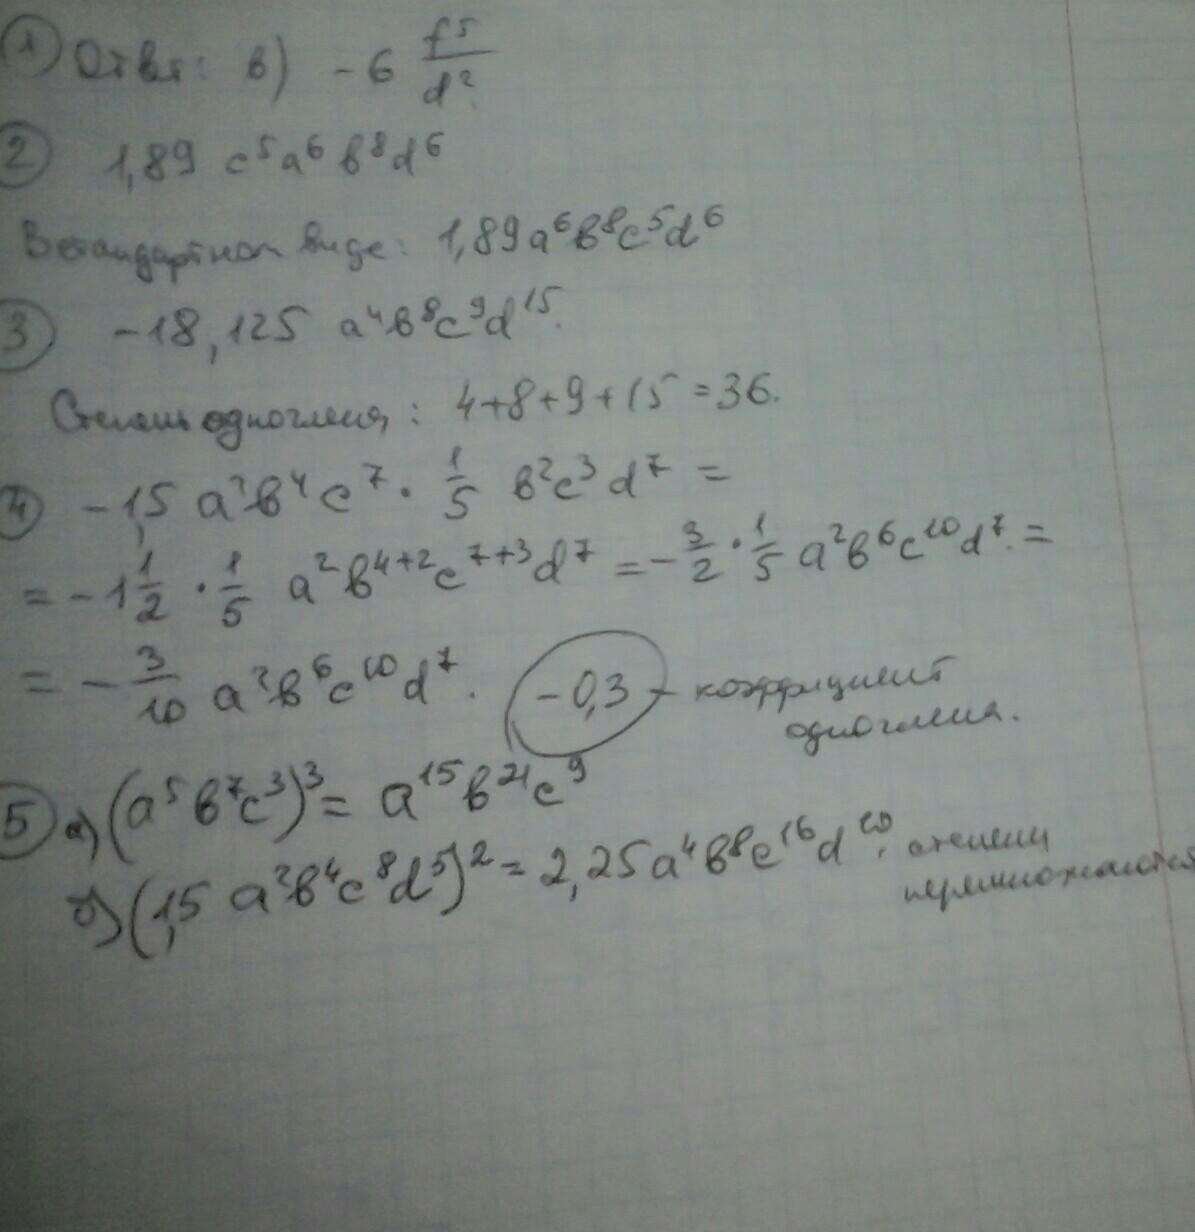 ① Ответ: в) -6 f⁵/d²
② 1,89 c⁵a⁶b⁸d⁶
В стандартном виде: 1,89a⁶b⁸c⁵d⁶
③ -18,125 a⁴b⁸c⁹d¹⁵.
Степень одночлена: 4+8+9+15=36.
④ -1,5 a²b⁴c⁷ · 1/5 b²c³d⁷ =
= -1 1/2 · 1/5 a²b⁴⁺²c⁷⁺³d⁷ = -3/2 · 1/5 a²b⁶c¹⁰d⁷. =
= -3/10 a²b⁶c¹⁰d⁷. -0,3 - коэффициент
одночлена.
⑤ а) (a⁵b⁷c³)³ = a¹⁵b²¹c⁹
б) (1,5 a²b⁴c⁸d⁵)² = 2,25a⁴b⁸c¹⁶d¹⁰, степени
перемножаются